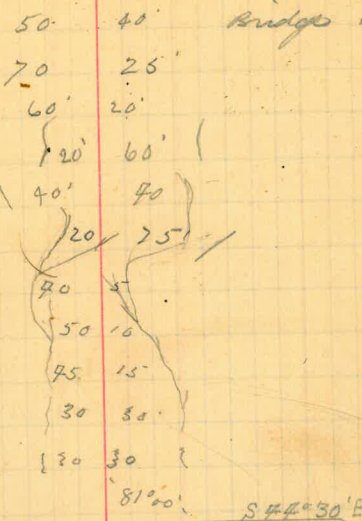 50 40' Bridge
70 25'
60' 20'
20' 60'
40' 70
20 75'
70 5
50 10
45 15
30 30
30 30
81°00' S 44°30'E